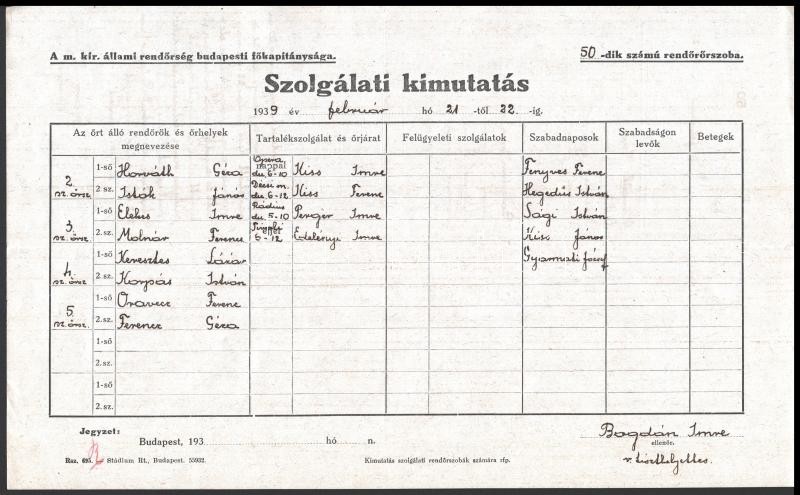 A m. kir. állami rendőrség budapesti főkapitánysága.
50 -dik számú rendőrőrszoba.
Szolgálati kimutatás
1939 év február hó 21 -től 22 -ig.
Az őrt álló rendőrök és őrhelyek megnevezése
Tartalékszolgálat és őrjárat
Felügyeleti szolgálatok
Szabadnaposok
Szabadságon levők
Betegek
2. sz. őrsz. 1-ső Horváth Géza Opera nappal du. 6-10 Kiss Imre Fenyves Ferenc
2. sz. Istók János Décsi m. du. 6-12 Kiss Ferenc Hegedűs István
3. sz. őrsz. 1-ső Elekes Imre Rádius du. 5-10 Perger Imre Sági István
2. sz. Molnár Ferenc éjjel 6-12 Edelényi Imre Kiss János
4. sz. őrsz. 1-ső Keresztes Lázár Gyarmati József
2. sz. Karpás István
5. sz. őrsz. 1-ső Oravecz Ferenc
2. sz. Ferencz Géza
1-ső
2. sz.
1-ső
2. sz.
Jegyzet:
Budapest, 193 hó n.
Bogdán Imre
ellenőr.
v. tiszthelyettes.
Raz. 695. Stádium Rt., Budapest. 55932.
Kimutatás szolgálati rendőrszobák számára rfp.